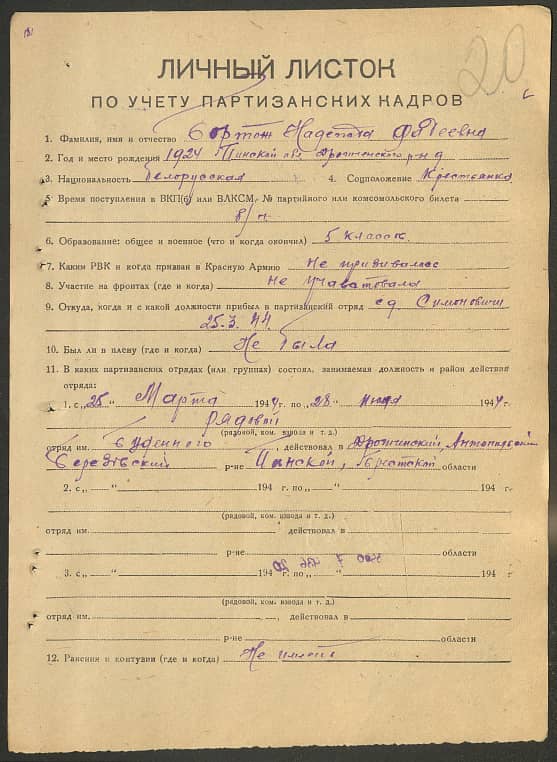 20
ЛИЧНЫЙ ЛИСТОК
ПО УЧЕТУ ПАРТИЗАНСКИХ КАДРОВ
1. Фамилия, имя и отчество Бортош Надежда Фадеевна
2. Год и место рождения 1924 Пинской обл. Дрогиченского р-на
3. Национальность белорусская 4. Соцположение Крестьянка
5. Время поступления в ВКП(б) или ВЛКСМ, № партийного или комсомольского билета
б/п
6. Образование: общее и военное (что и когда окончил) 5 классов
7. Каким РВК и когда призван в Красную Армию Не призивалась
8. Участие на фронтах (где и когда) не учавствовала
9. Откуда, когда и с какой должности прибыл в партизанский отряд с д. Симоновичи
25.3.44.
10. Был ли в плену (где и когда) Не была
11. В каких партизанских отрядах (или группах) состоял, занимаемая должность и район действия
отряда:
1. с „25" Марта 1944 г. по „28" июня 1944 г.
рядовой
(радовой, ком. взвода и т. д.)
отряд им. Буденного, действовал в Дрогичинский, Антопольский
Березовский р-не Пинской, Брестской области
2. с „ " 194 г. по „ " 194 г.
(рядовой, ком. взвода и т. д.)
отряд им. действовал в
р-не области
3. с „ " 194 г. по „ " 194 г.
(рядовой, ком. взвода и т. д.)
отряд им. , действовал в
р-не области
12. Ранения и контузии (где и когда) Не имеет